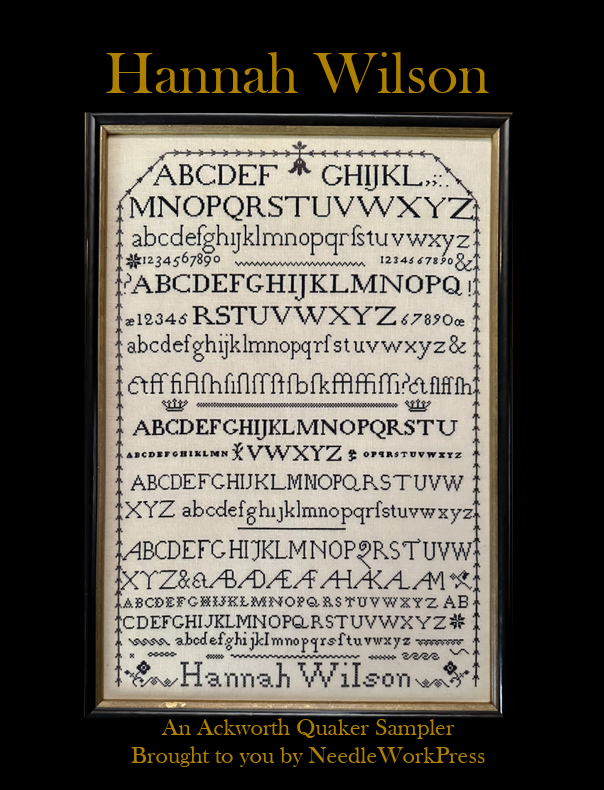 Hannah Wilson
ABCDEF GHIJKL,,;:.
MNOPQRSTUVWXYZ
abcdefghıjklmnopqrſstuvwxyz
1234567890 1234567890&
?ABCDEFGHIJKLMNOPQ!
æ12345 RSTUVWXYZ 67890œ
abcdefghıjklmnopqrſstuvwxyz&
ABCDEFGHIJKLMNOPQRSTU
ABCDEFGHIKLMN VWXYZ OPQRSTUVWXYZ
ABCDEFGHIJKLMNOPQRSTUVW
XYZ abcdefghıjklmnopqrſstuvwxyz
ABCDEFGHIJKLMNOPQRSTUVW
XYZ&
ABCDEFGHIJKLMNOPQRSTUVWXYZ AB
CDEFGHIJKLMNOPQRSTUVWXYZ
abcdefghijklmnopqrsſtuvwxyz
Hannah Wilson
An Ackworth Quaker Sampler
Brought to you by NeedleWorkPress